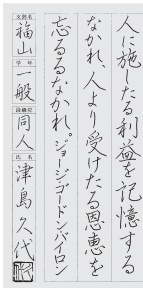 人に施したる利益を記憶する
なかれ、人より受けたる恩恵を
忘るるなかれ。ジョージゴードンバイロン
支部名
福山
学年
一般
段級位
同人
氏名
津島久代